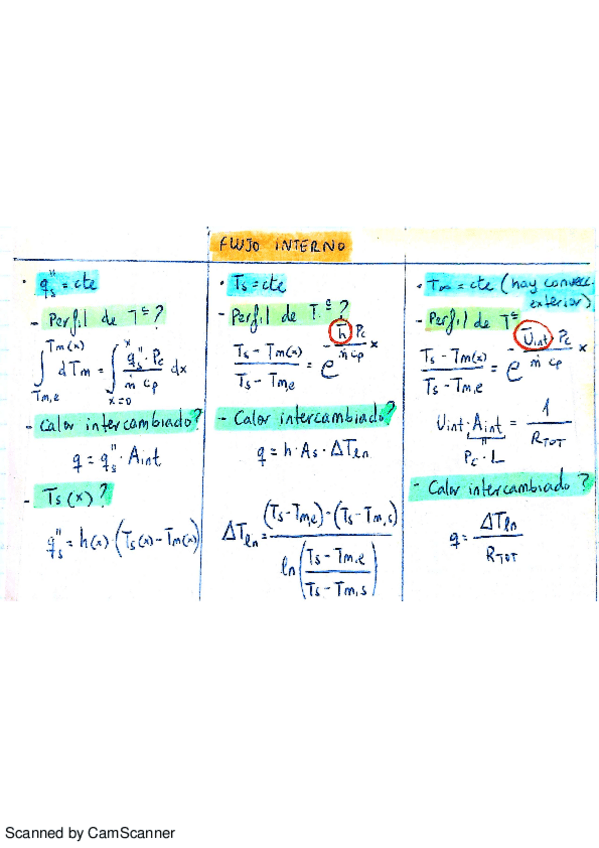 FLUJO INTERNO
· q''s = cte
- Perfil de Tª?
∫Tm,e^Tm(x) dTm = ∫x=0^x q''s · Pc / ṁ cp dx
- Calor intercambiado?
q = q''s · Aint
- Ts(x)?
q''s = h(x) · (Ts(x) - Tm(x))
· Ts = cte
- Perfil de T.ª?
Ts - Tm(x) / Ts - Tm,e = e^(- h̄ Pc / ṁ cp x)
- Calor intercambiado?
q = h · As · ΔTln
ΔTln = (Ts - Tm,e) - (Ts - Tm,s) / ln(Ts - Tm,e / Ts - Tm,s)
· T∞ = cte (hay convecc. exterior)
- Perfil de Tª
Ts - Tm(x) / Ts - Tm,e = e^(- Uint Pc / ṁ cp x)
Uint · Aint = 1 / RTOT
"
Pc · L
- Calor intercambiado?
q = ΔTln / RTOT
Scanned by CamScanner